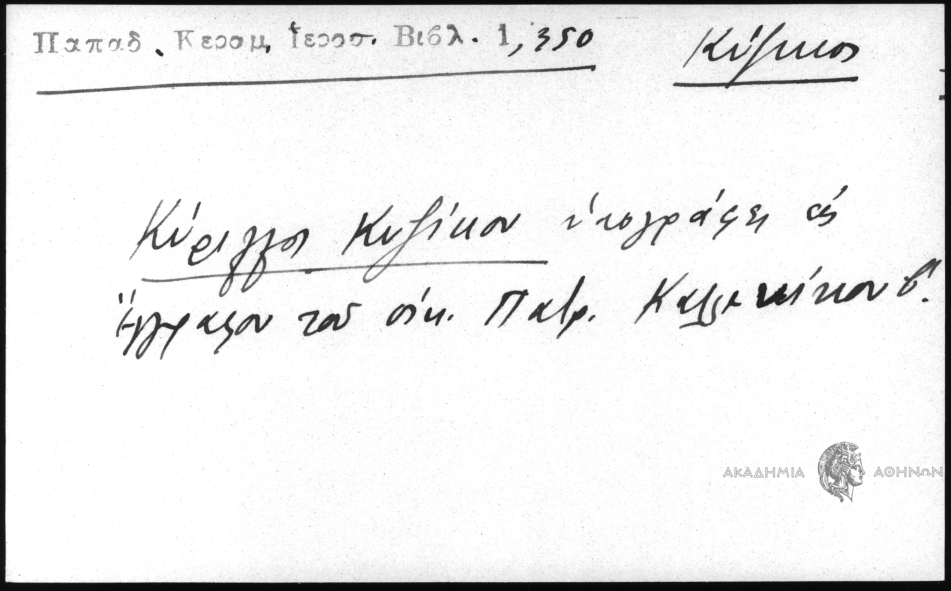 Παπαδ. Κεραμ. Ιεροσ. Βιβλ. 1,350
Κύζικος
Κύριλλος Κυζίκου ὑπογράφει εἰς
ἔγγραφον τοῦ οἰκ. Πατρ. Καλλινίκου β'.
ΑΚΑΔΗΜΙΑ ΑΘΗΝΩΝ